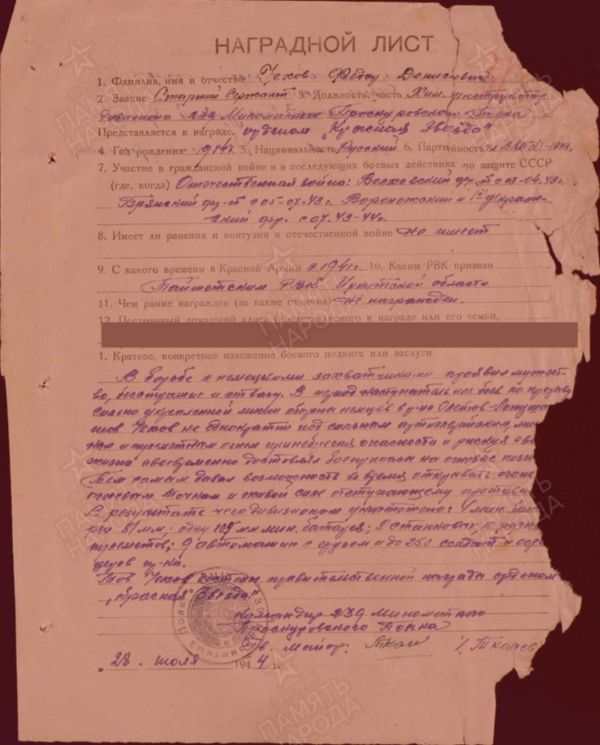 НАГРАДНОЙ ЛИСТ
1. Фамилия, имя и отчество Чехов Федор Денисович
2. Звание Старший Сержант 3. Должность, часть Хим. инструктор
дивизиона 239 Минометного Проскуровского Полка
Представляется к награде орденом "Красная Звезда"
4. Год рождения 5. Национальность Русский 6. Партийность
7. Участие в гражданской войне и в последующих боевых действиях по защите СССР
(где, когда) Отечественная война: Волховский
Брянский фр-т с 05-07.43г. Воронежский и 1 Украин-
ский фр. с 07.43-44г.
8. Имеет ли ранения и контузии в отечественной войне не имеет
9. С какого времени в Красной Армии с 1941г. 10. Каким РВК призван
Тайшетским РВК Иркутской области
11. Чем ранее награжден (за какие отличия) не награжден.
12. Постоянный домашний адрес представляемого к награде или его семьи,
1. Краткое, конкретное изложение боевого подвига или заслуги
В борьбе с немецкими захватчиками проявил мужест-
во, бесстрашие и отвагу. В период наступательных боев по прорыву
сильно укрепленной линии обороны немцев в р-не
Чехов не однократно под сильным артиллерийским, мин
ным и пулеметным огнем пренебрегая опасности и рискуя
жизни своевременно доставлял боеприпасы на огневые
Тем самым давал возможность во время открывать огонь
огневым точкам и живой силе отступающему противни
В результате чего дивизионом уничтожено: 4 мин. бата
реи 81 мм; одну мм мин. батарею; 8 станковых и ручных
пулеметов; 9 автомашин с грузом и до 250 солдат и офи
церов пр-ка.
Тов Чехов достоин правительственной награды орденом
"Красная Звезда"
Командир 239 Минометного
Проскуровского Полка
Гв. майор: Ткач
28. июля 1944 г.
ПАМЯТЬ НАРОДА
ПАМЯТЬ НАРОДА
ПАМЯТЬ НАРОДА